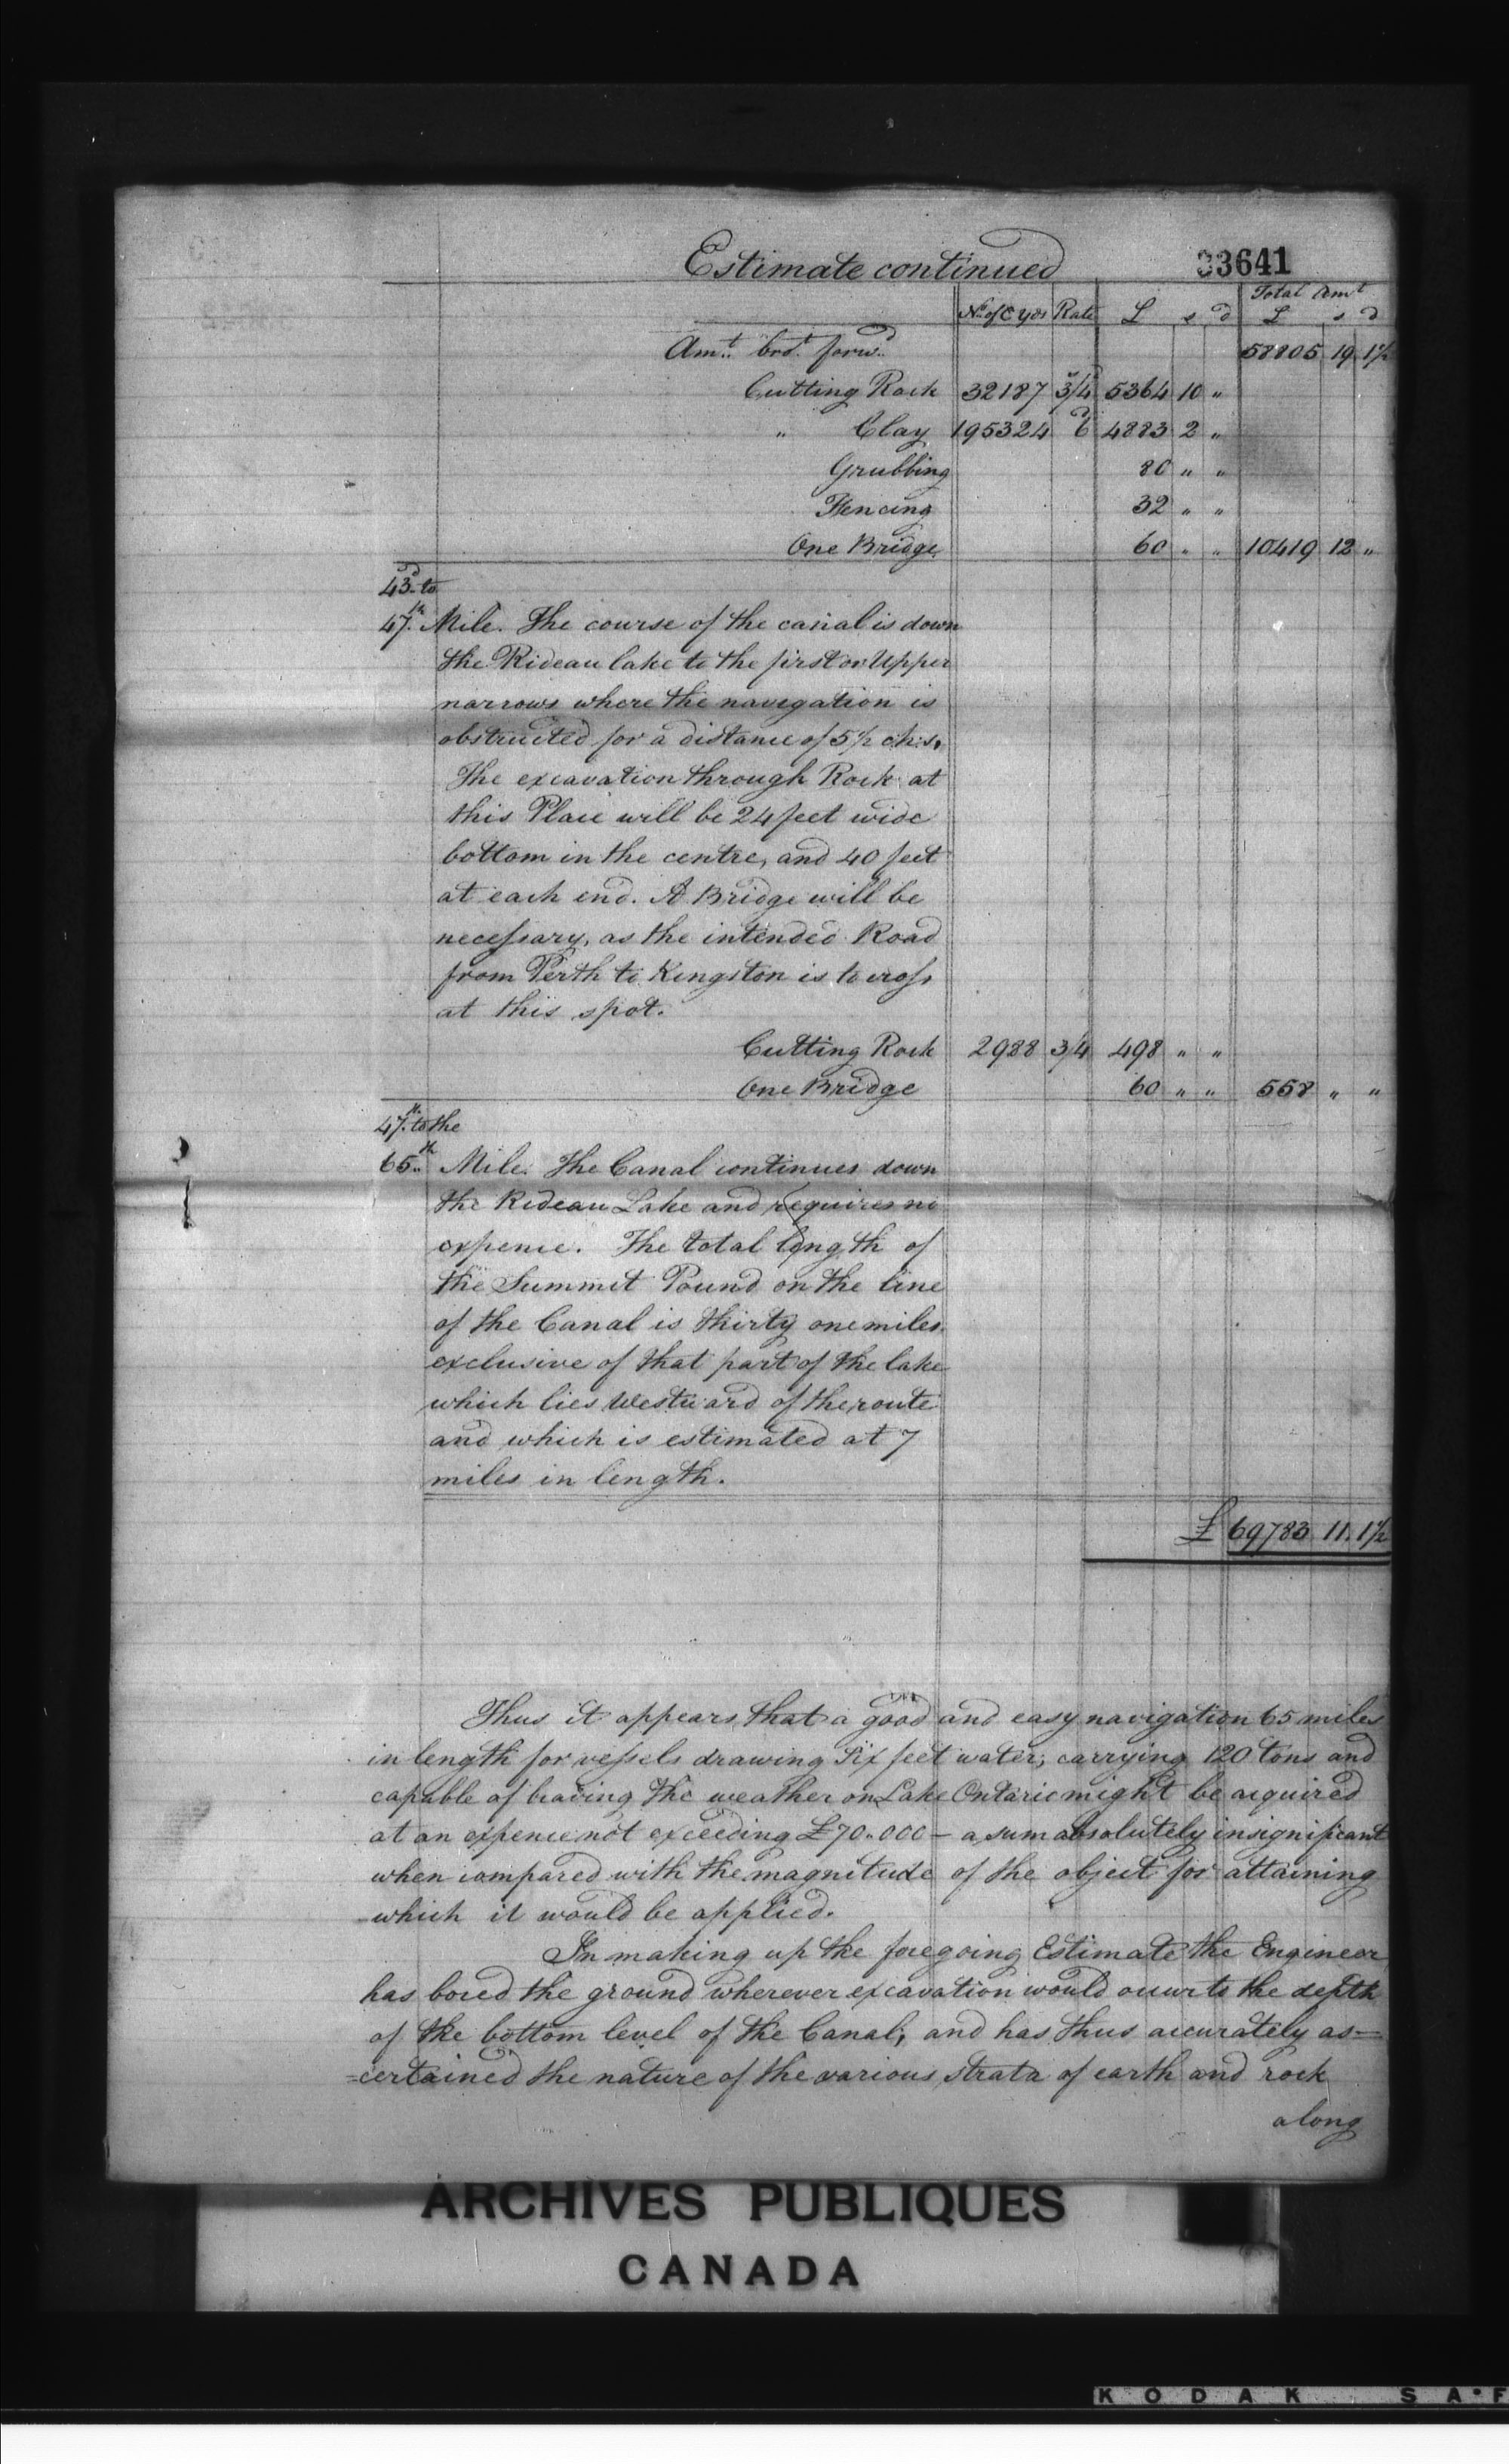 Estimate continued 33641
Total Amt
No. of C yds Rate £ s d £ s d
Amt. brot. forwd. 58805 19 1½
Cutting Rock 32187 3/4 5364 10 "
" Clay 195324 6d 4883 2 "
Grubbing 80 " "
Fencing 32 " "
One Bridge 60 " " 10419 12 "
43d. to
47th. Mile. The course of the canal is down
the Rideau lake to the first or Upper
narrows where the navigation is
obstructed for a distance of 5½ chs.
The excavation through Rock at
this Place will be 24 feet wide
bottom in the centre, and 40 feet
at each end. A Bridge will be
necessary, as the intended Road
from Perth to Kingston is to cross
at this spot.
Cutting Rock 2988 3/4 498 " "
One Bridge 60 " " 558 " "
47th. to the
65th. Mile. The Canal continues down
the Rideau Lake and requires no
expence. The total length of
the Summit Pound on the line
of the Canal is thirty one miles
exclusive of that part of the lake
which lies Westward of the route
and which is estimated at 7
miles in length.
£ 69783 11. 1½
Thus it appears that a good and easy navigation 65 miles
in length for vessels drawing Six feet water, carrying 120 tons and
capable of braving the weather on Lake Ontario might be acquired
at an expence not exceeding £70.000 – a sum absolutely insignificant
when compared with the magnitude of the object for attaining
which it would be applied.
In making up the foregoing Estimate the Engineer
has bored the ground wherever excavation would occur to the depth
of the bottom level of the Canal, and has thus accurately as=
=certained the nature of the various strata of earth and rock
along
ARCHIVES PUBLIQUES
CANADA
KODAK SA•F